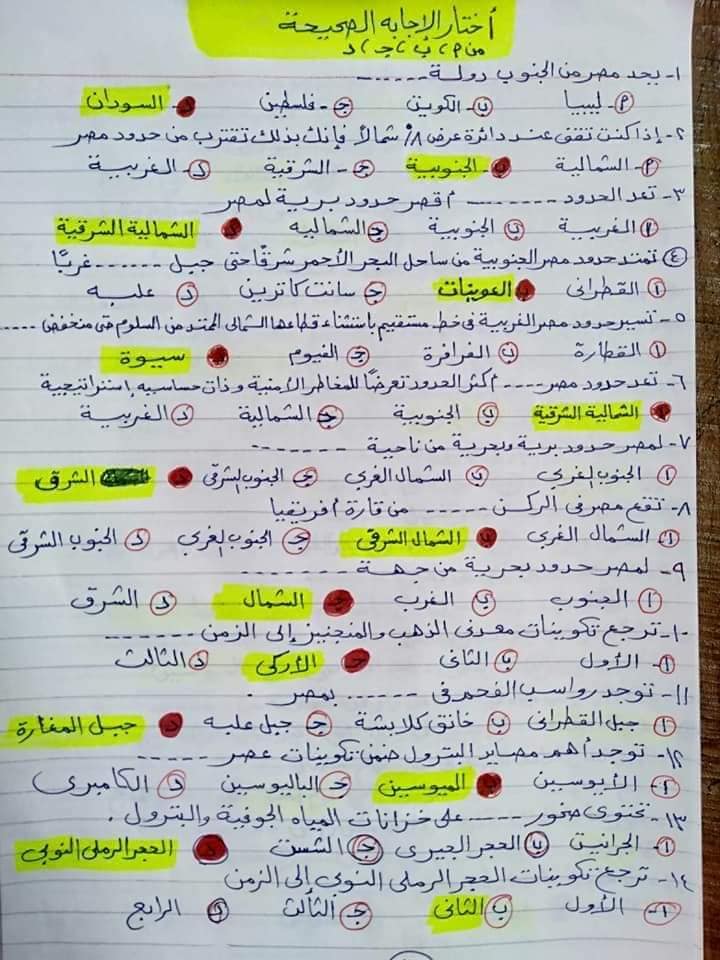 أختار الإجابه الصحيحة
من أ، ب، ج، د
١- يحد مصر من الجنوب دولة ......
أ ليبيا ب- الكويت ج- فلسطين د- السودان
٢- إذا كنت تقف عند دائرة عرض ١٨° شمالاً فإنك بذلك تقترب من حدود مصر
أ- الشمالية ب- الجنوبية ج- الشرقية د- الغربية
٣- تعد الحدود ......... أقصر حدود برية لمصر
أ الغربية ب الجنوبية ج الشماليه د الشمالية الشرقية
٤ تمتد حدود مصر الجنوبية من ساحل البحر الأحمر شرقًا حتى جبل ...... غربًا
أ القطرانى ب العوينات ج سانت كاترين د علبه
٥- تسير حدود مصر الغربية فى خط مستقيم باستثناء قطاعها الشمالى الممتد من السلوم حتى منخفض ....
أ القطارة ب الفرافرة ج الفيوم د سيوة
٦- تعد حدود مصر .... أكثر الحدود تعرضًا للمخاطر الأمنية وذات حساسيه إستراتيجية
أ الشمالية الشرقية ب الجنوبية ج الشمالية د الغربية
٧- لمصر حدود برية وبحرية من ناحية .......
أ الجنوب الغربى ب الشمال الغربي ج الجنوب الشرقى د الشرق
٨- تقع مصر فى الركن ..... من قارة أفريقيا
أ- الشمال الغربي ب الشمال الشرقى ج الجنوب الغربي د الجنوب الشرقى
٩- لمصر حدود بحرية من جهة ........
أ الجنوب ب الغرب ج الشمال د الشرق
١٠- ترجع تكوينات معدنى الذهب والمنجنيز إلى الزمن .......
أ- الأول ب الثانى ج الأركى د الثالث
١١- توجد رواسب الفحم فى ...... بمصر .
أ جبل القطرانى ب خانق كلابشة ج جبل علبه د جبل المغارة
١٢- توجد أهم مصاير البترول ضمن تكوينات عصر .....
أ- الأيوسين ب الميوسين ج الباليوسين د الكامبرى
١٣- تحتوى صخور ..... على خزانات المياه الجوفية والبترول .
أ- الجرانيت ب الحجر الجيرى ج الشست د الحجر الرملى النوبى
١٤- ترجع تكوينات الحجر الرملى النوبى إلى الزمن
أ- الأول ب الثانى ج الثالث د الرابع